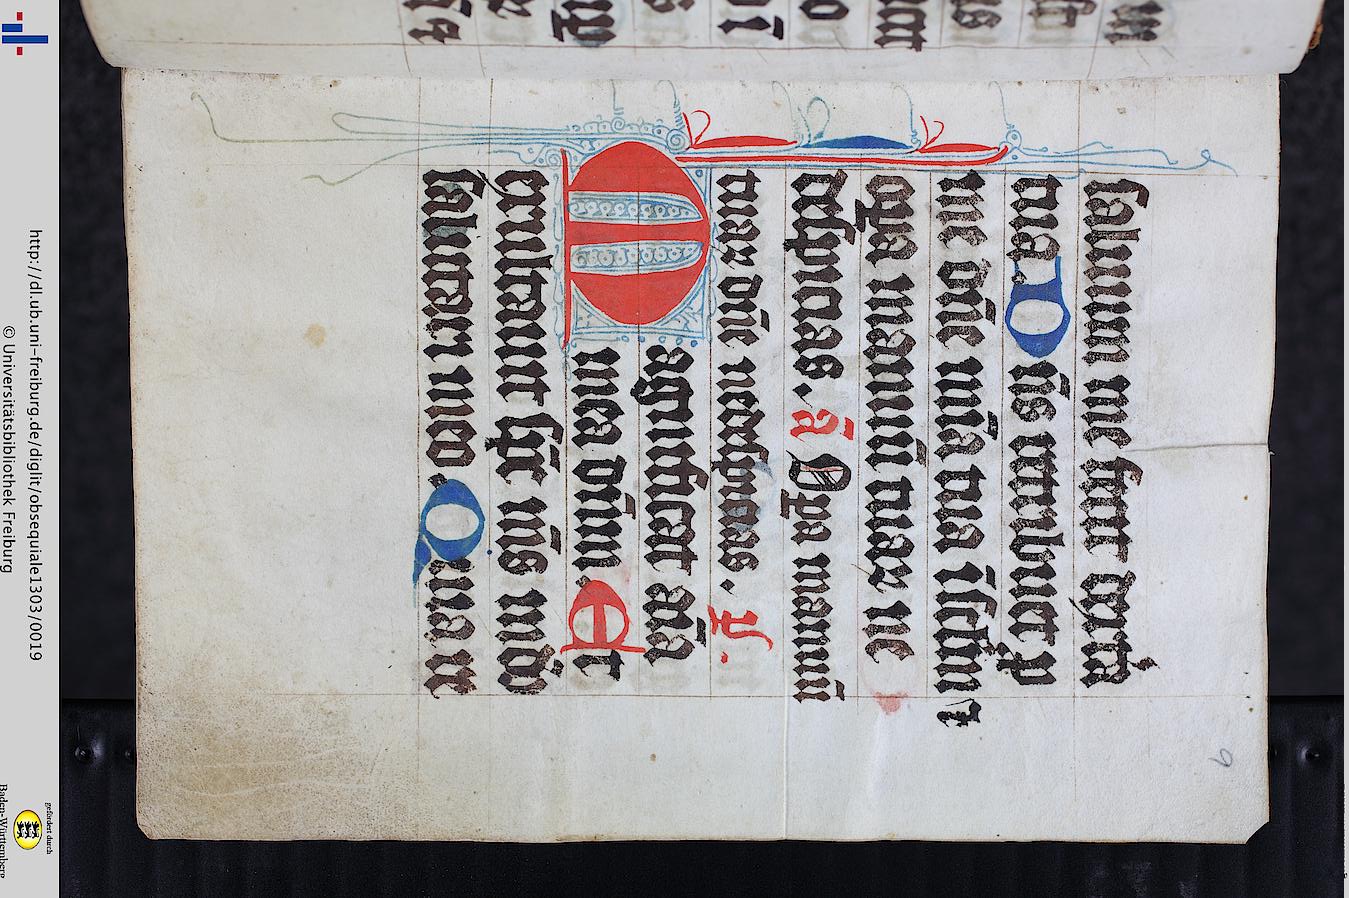 saluum me fecit dextera
tua. Dn̄s retribuet ꝑ
me dn̄e mīa tua ī sclm̄ ⁊
oꝑa manuū tuaꝝ ne
despicias. ā Oꝑa manuū
tuaꝝ dn̄e ne despicias. V̄.
Magnificat aīa
mea dn̄m Et
exultauit sp̄c me᷒ in deo
salutari meo. Quia re
6
http://dl.ub.uni-freiburg.de/diglit/obsequiale1303/0019
© Universitätsbibliothek Freiburg
gefördert durch
Baden-Württemberg